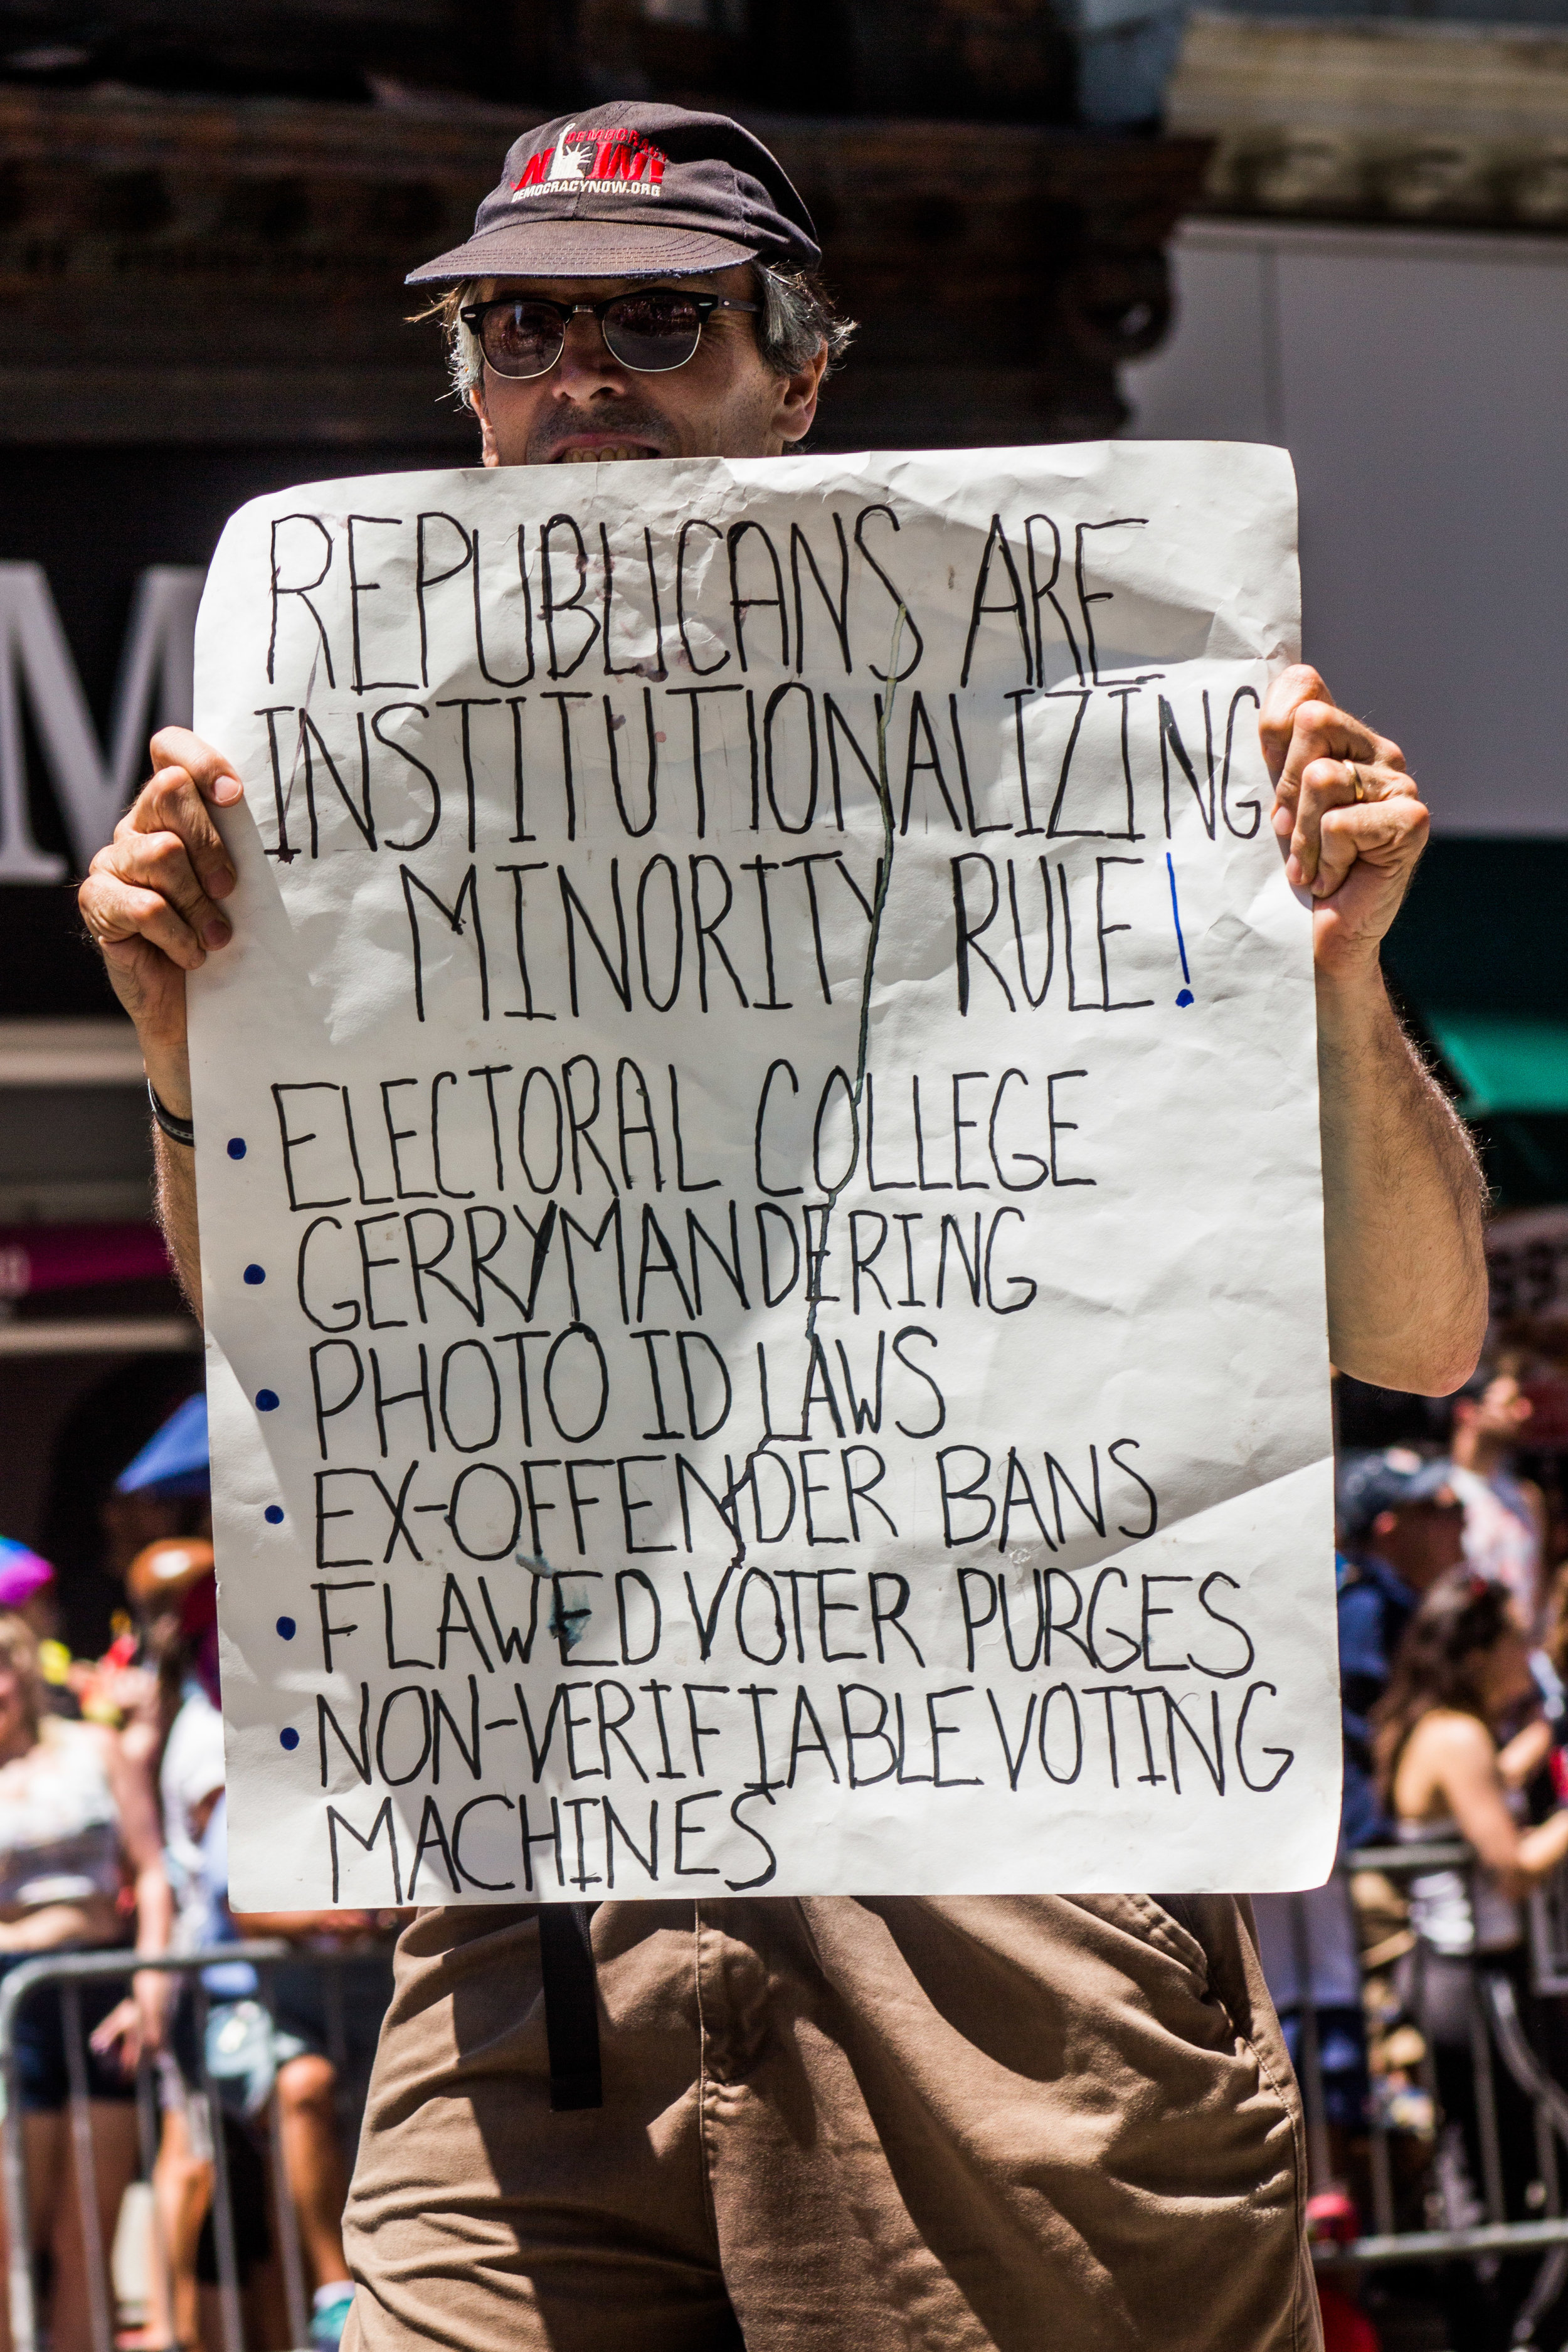 DEMOCRACY
NOW!
DEMOCRACYNOW.ORG
REPUBLICANS ARE
INSTITUTIONALIZING
MINORITY RULE!
• ELECTORAL COLLEGE
• GERRYMANDERING
• PHOTO ID LAWS
• EX-OFFENDER BANS
• FLAWED VOTER PURGES
• NON-VERIFIABLE VOTING
MACHINES
M